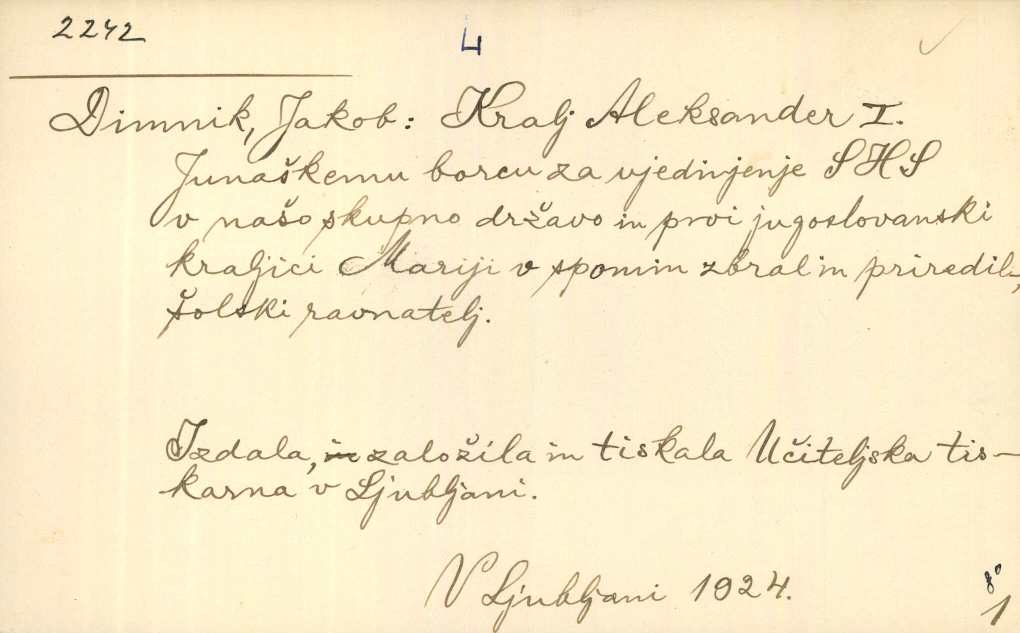 2242
4
Dimnik, Jakob: Kralj Aleksander I.
Junaškemu borcu za ujedinjenje SHS
v našo skupno državo in prvi jugoslovanski
kraljici Mariji v spomin zbral in priredil -,
šolski ravnatelj.
Izdala, in založila in tiskala Učiteljska tis-
karna v Ljubljani.
V Ljubljani 1924.
8°
1